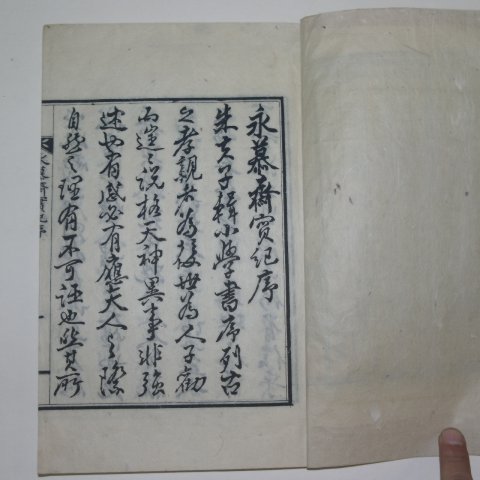 永慕齋實紀序
朱夫子輯小學書序列古
之孝親者爲後世爲人子勸
而選之說格天神異事非強
述也有感必有應天人之際
自然之理有不可誣也然其所
永慕齋實紀序